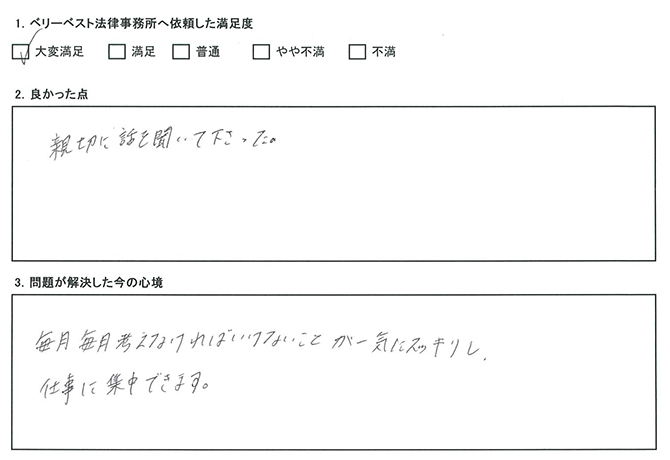 1. ベリーベスト法律事務所へ依頼した満足度
大変満足 満足 普通 やや不満 不満
2. 良かった点
親切に話を聞いて下さった。
3. 問題が解決した今の心境
毎月毎月考えなければいけないことが一気にスッキリし、
仕事に集中できます。